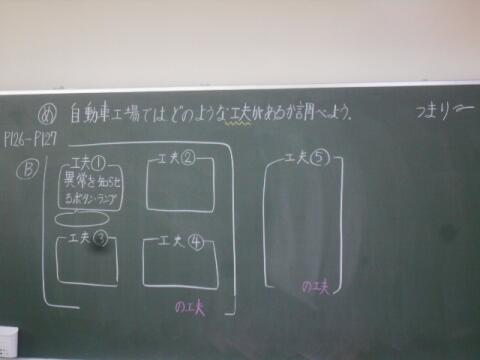 め 自動車工場ではどのような工夫があるか調べよう。
つまり
P126-P127
B
工夫①
異常を知らせ
るボタン・ランプ
工夫②
工夫⑤
工夫③
工夫④
の工夫
の工夫